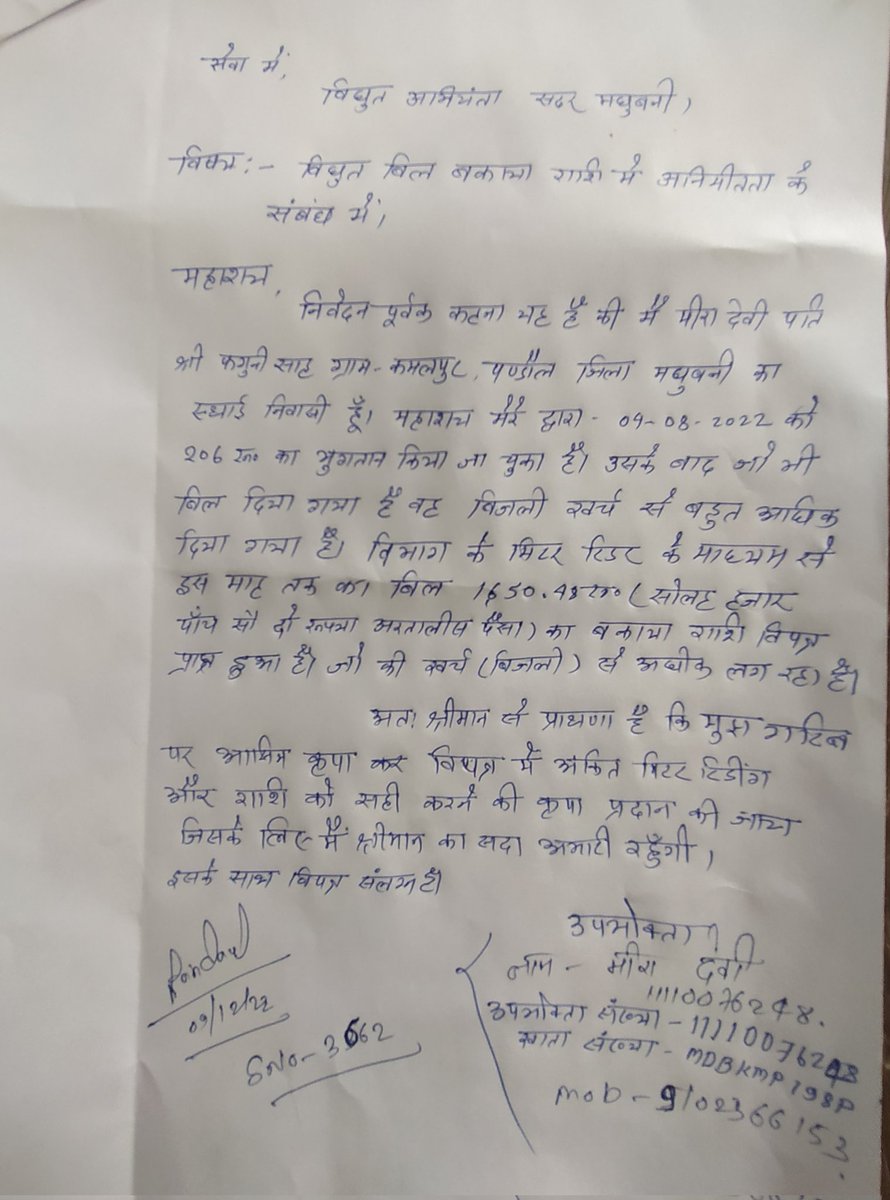 सेवा में,
विद्युत अभियंता सदर मधुबनी,
विषय:- विद्युत बिल बकाया राशि में अनिमीतता के
संबंध में,
महाशय,
निवेदन पूर्वक कहना यह है की मै मीरा देवी पति
श्री फगुनी साह ग्राम- कमलपुर, पण्डौल जिला मधुबनी का
स्थाई निवासी हूँ। महाशय मेरे द्वारा - 04-08-2022 को
206 रू० का भुगतान किया जा चुका है। उसके बाद जो भी
बिल दिया गया है वह बिजली खर्च से बहुत अधिक
दिया गया है। विभाग के मिटर रिडर के माध्यम से
इस माह तक का बिल 1650.48रू० (सोलह हजार
पाँच सौ दो रूपया अरतालीस पैसा) का बकाया राशि विपत्र
प्राप्त हुआ है। जो की खर्च (बिजली) से अधीक लग रहा है।
अत: श्रीमान से प्राथणा है कि मुझ गरिब
पर आमित्र कृपा कर विपत्र में अंकित मिटर रिडींग
और राशि को सही करने की कृपा प्रदान की जाय
जिसके लिए मैं श्रीमान का सदा अभारी रहुँगी,
इसके साथ विपत्र संलग्न है।
उपभोक्ता
नाम - मीरा देवी
1110076248.
उपभोक्ता संख्या - 11110076248
खाता संख्या - MDBKMP198P
MOD - 9102366153
Pandaul
09/12/22
SNO- 3662